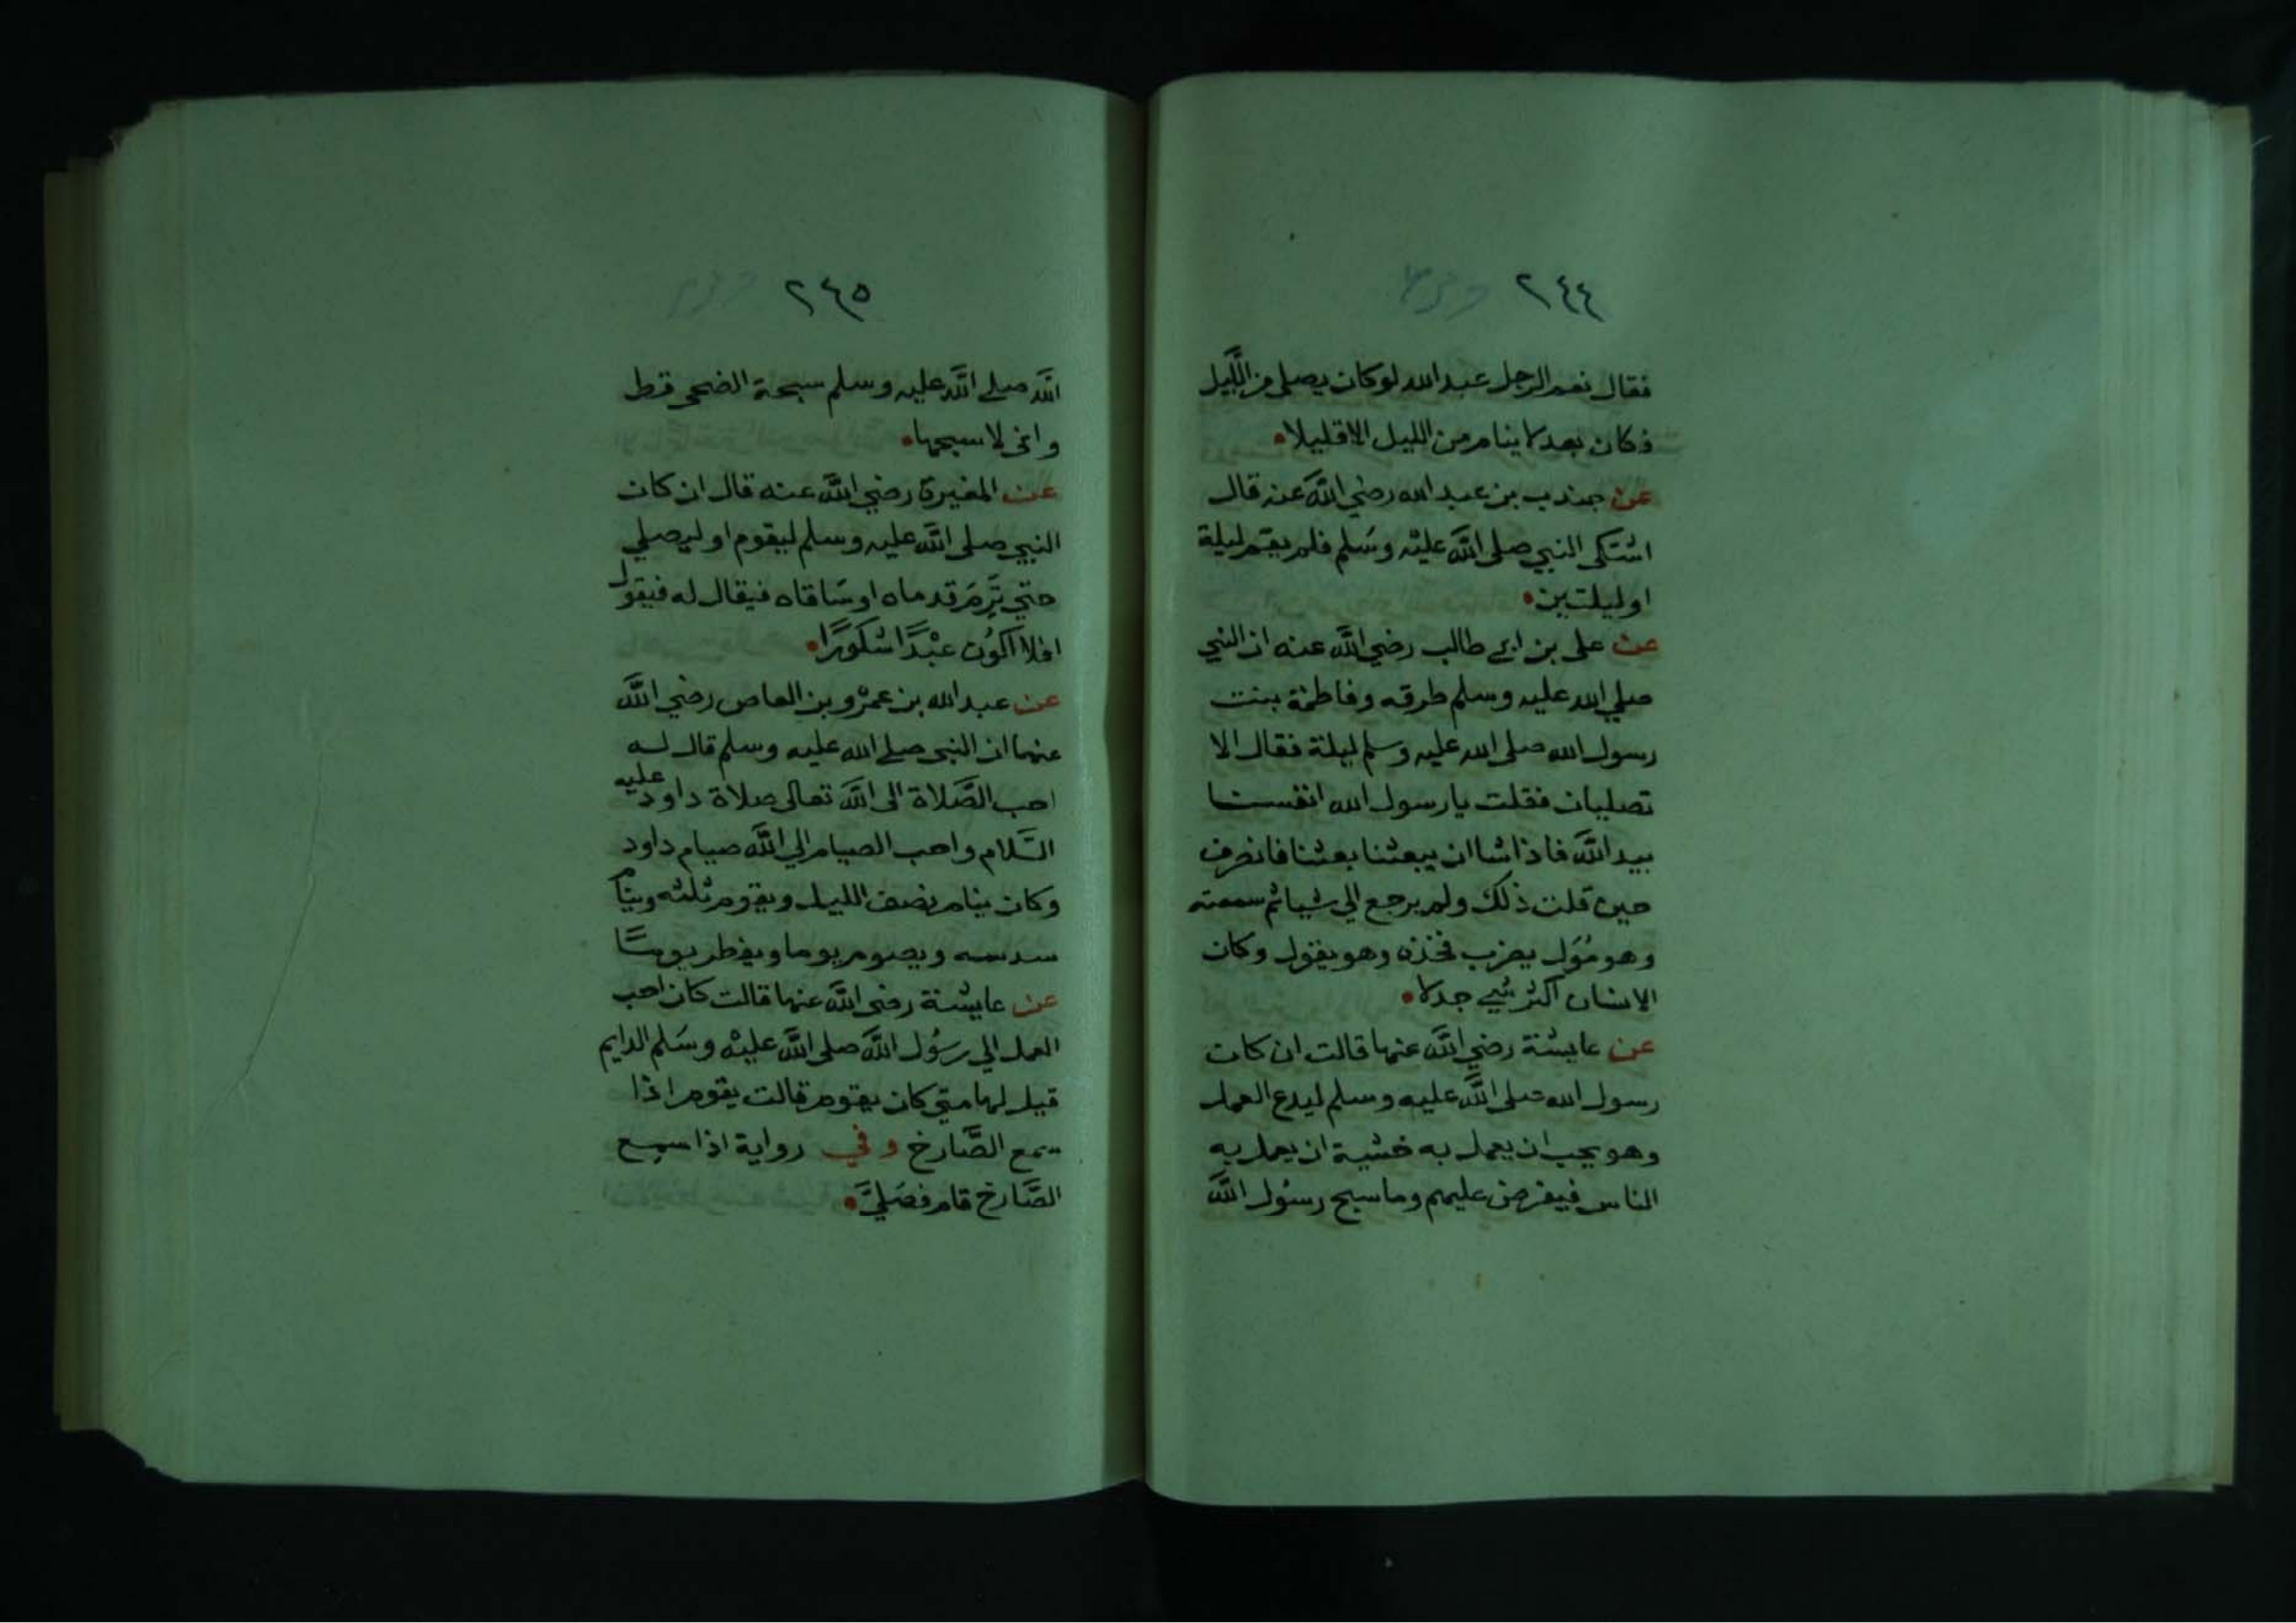 ٢٤٤
فقال نعم الرجل عبد الله لو كان يصلي من اللَّيل
فكان بعد لا ينام من الليل الا قليلا
عن جندب بن عبد الله رضي اللَّه عنه قال
اشتكى النبي صلى اللَّه عليْه وسَلم فلم يقم ليلة
او ليلتين
عن على بن ابي طالب رضي اللَّه عنه ان النبي
صلي الله عليه وسلم طرقه وفاطمة بنت
رسول الله صلى الله عليه وسلم ليلة فقال الا
تصليان فقلت يا رسول الله انفسنا
بيد اللَّه فاذا شا ان يبعثنا بعثنا فانصرف
حين قلت ذلك ولم يرجع الي شيا ثم سمعته
وهو مُوَل يضرب فخذه وهو يقول وكان
الانسان اكثر شي جدلا
عن عايشة رضي اللَّه عنها قالت ان كان
رسول الله صلى اللَّه عليه وسلم ليدع العمل
وهو يحب ان يعمل به خشية ان يعمل به
الناس فيفرض عليهم وما سبح رسُول اللَّه
٢٤٥
اللَّه صلى اللَّه عليه وسلم سبحة الضحى قط
واني لاسبحها
عن المغيرة رضي اللَّه عنه قال ان كان
النبي صلى اللَّه عليه وسلم ليقوم او ليصلي
حتي تَرِمَ قدماه او سَاقاه فيقال له فيقول
افلا اكوُن عبْدًا شكورًا
عن عبد الله بن عمرْو بن العاص رضي اللَّه
عنهما ان النبي صلى الله عليه وسلم قال له
احب الصَّلاة الى اللَّه تعالى صلاة داود عليه
السَّلام واحب الصيام الي اللَّه صيام داود
وكان ينام نصف الليل ويقوم ثلثه وينام
سدسه ويصوم يوما ويفطر يومًا
عن عايشة رضي اللَّه عنها قالت كان احب
العمل الي رسُول اللَّه صلى اللَّه عليْه وسَلم الدايم
قيل لها متي كان يقوم قالت يقوم اذا
سمع الصَّارخ وفي رواية اذا سمع
الصَّارخ قام فصَليَّ